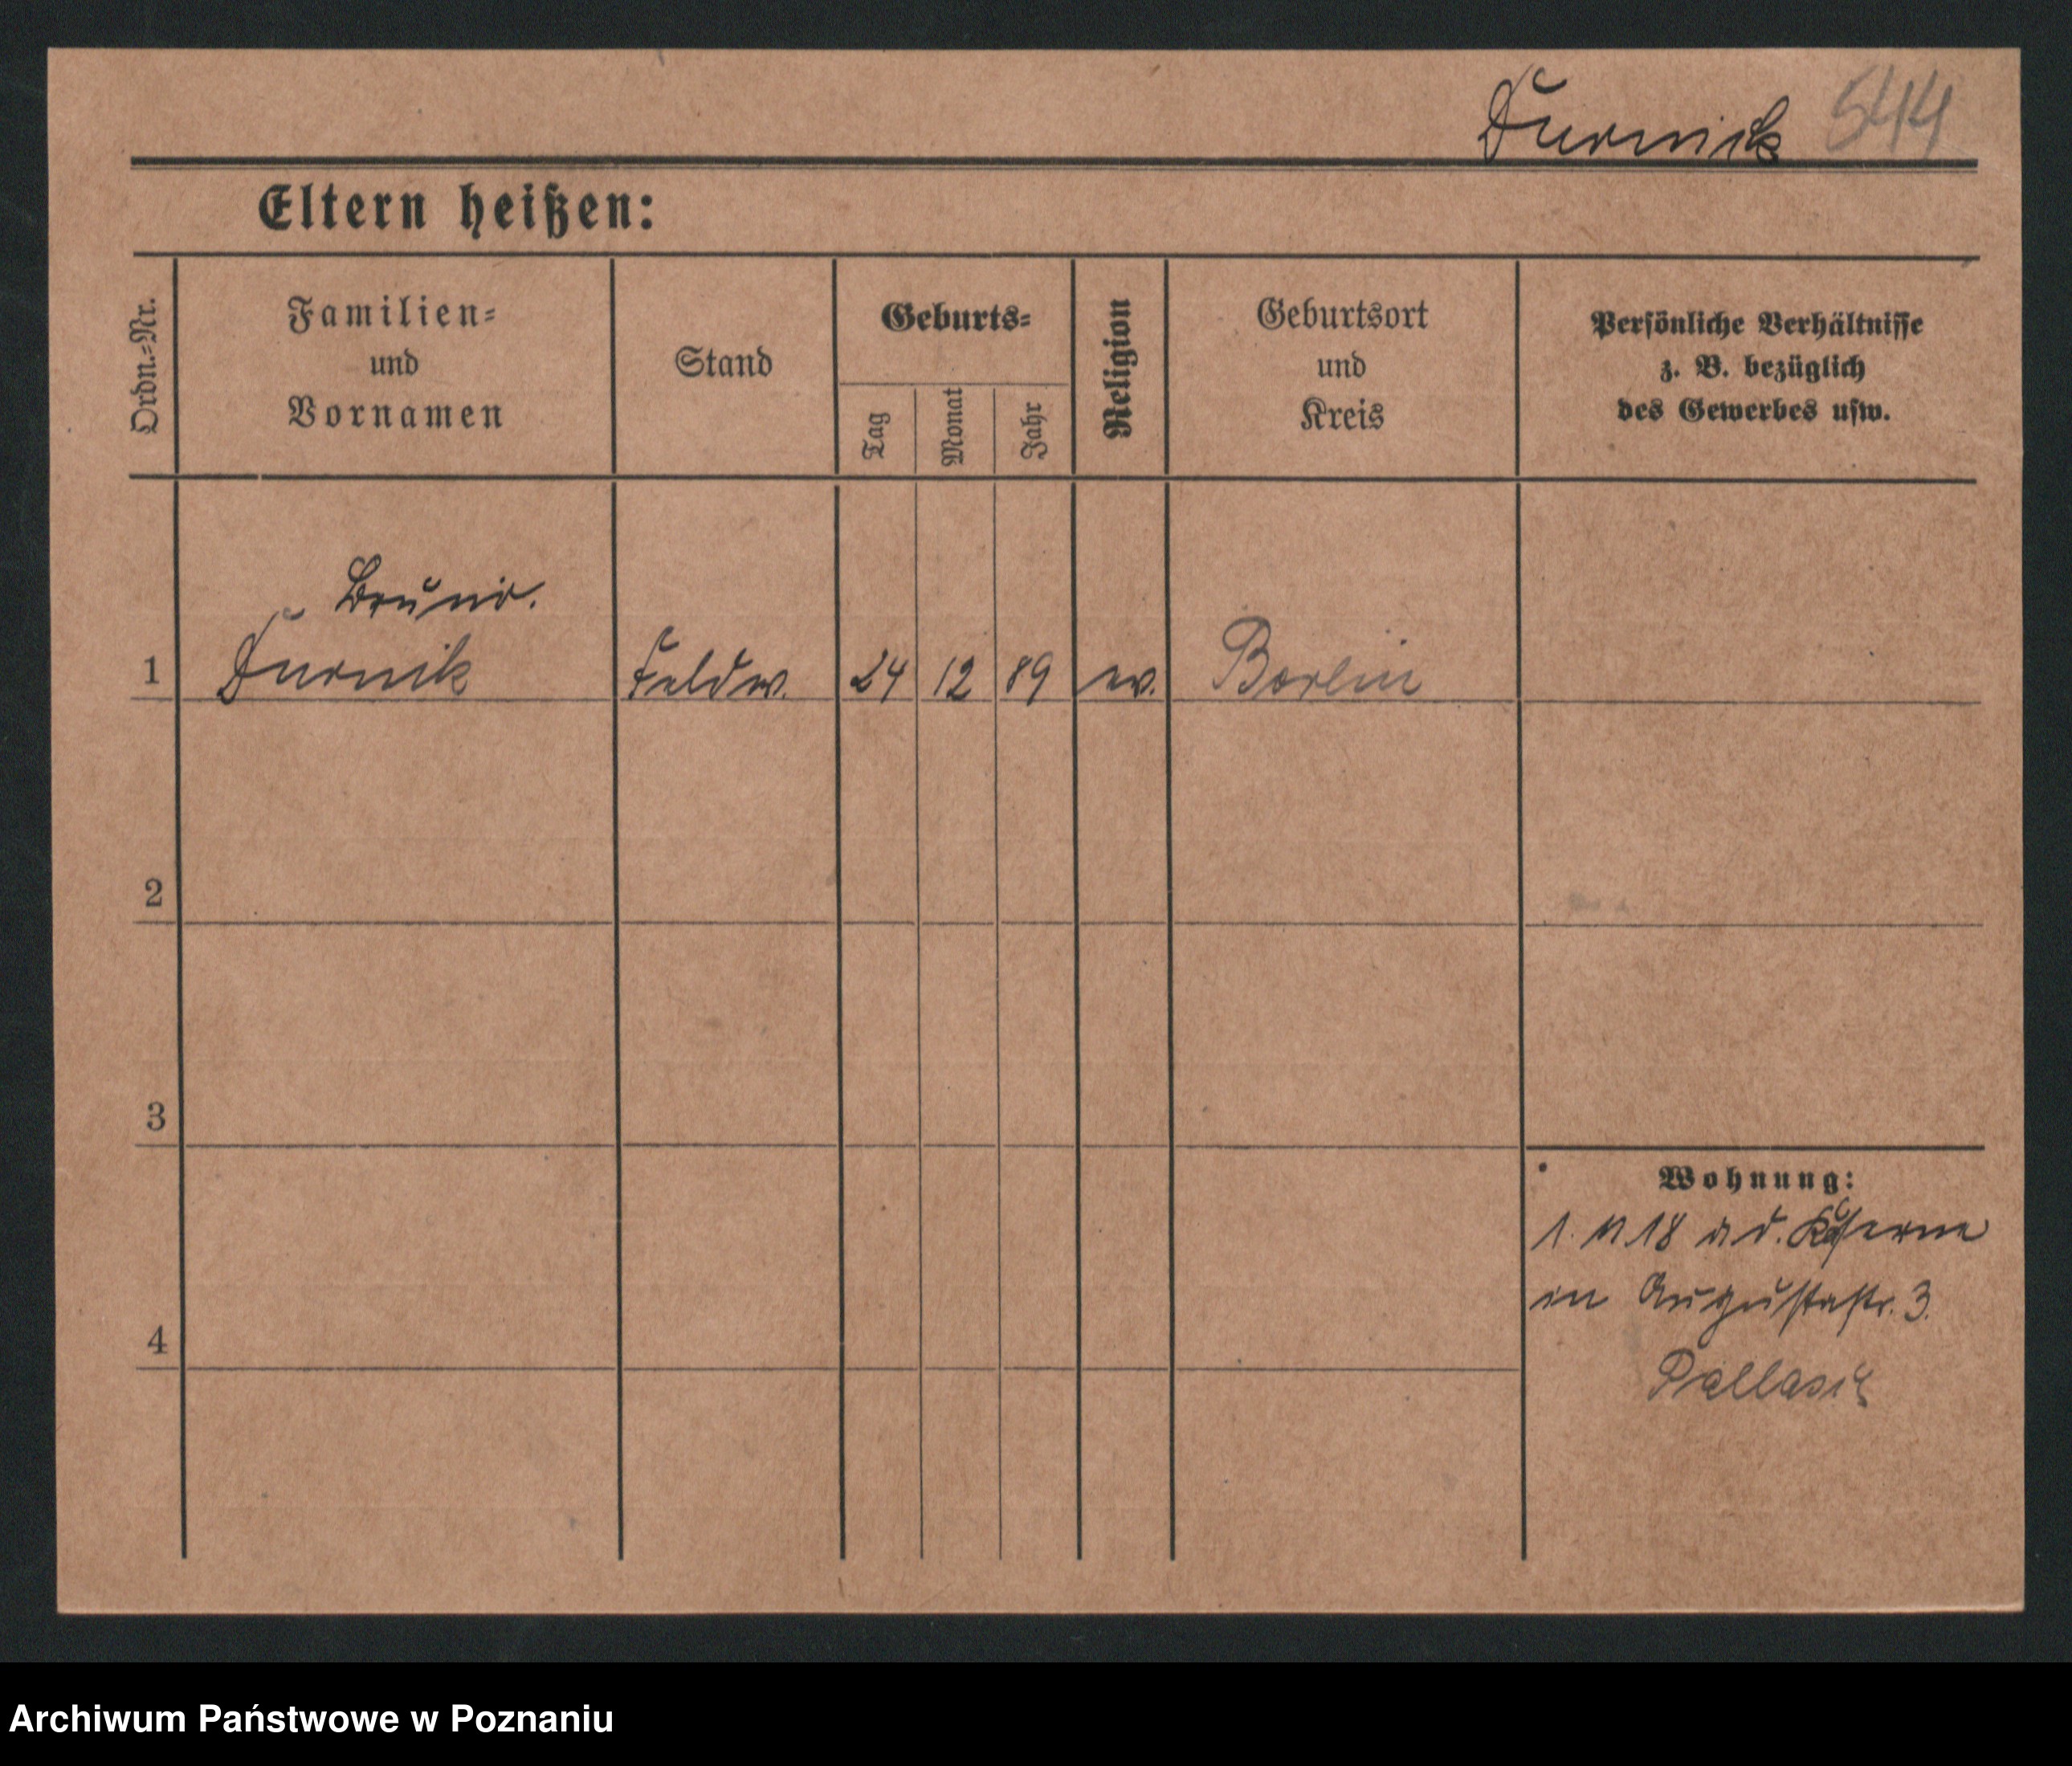 Durnick 544
Eltern heißen:
Ordn.=Nr.
Familien=
und
Vornamen
Stand
Geburts=
Tag
Monat
Jahr
Religion
Geburtsort
und
Kreis
Persönliche Verhältnisse
z. B. bezüglich
des Gewerbes usw.
Bruno.
1 Durnik Feldw. 24 12 89 ev. Berlin
2
3
4
Wohnung:
1. 11 18 a d. Kaserne
in Augustastr. 3.
Archiwum Państwowe w Poznaniu